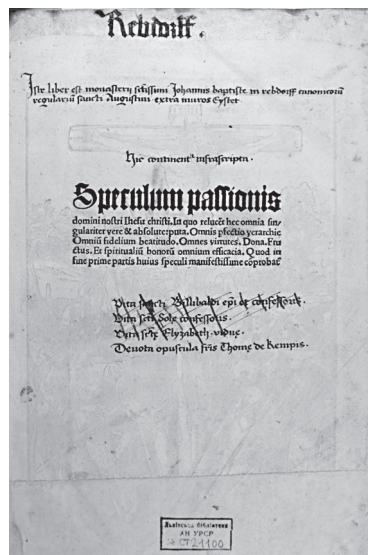 Rebdorff.
Iste liber est monasterij sctissimi Johannis baptiste in rebdorff canonicorū
regulariū sancti Augustini extra muros Eystet
Hic continent infrascripta.
Speculum passionis
domini nostri Ihesu christi. In quo relucēt hec omnia sin-
gulariter vere & absolute: puta. Omnis pfectio yerarchie
Omniū fidelium beatitudo. Omnes virtutes. Dona. Fru
ctus. Et spiritualiū bonorū omnium efficacia. Quod in
fine prime partis huius speculi manifestissime cōprobat
Vita sancti Willibaldi epi et confessoris.
Vita scti Sole confessoris.
Vita scte Elyzabeth vidue.
Devota opuscula fris Thome de kempis.
Львівська бібліотека
АН УРСР
СТ 21100